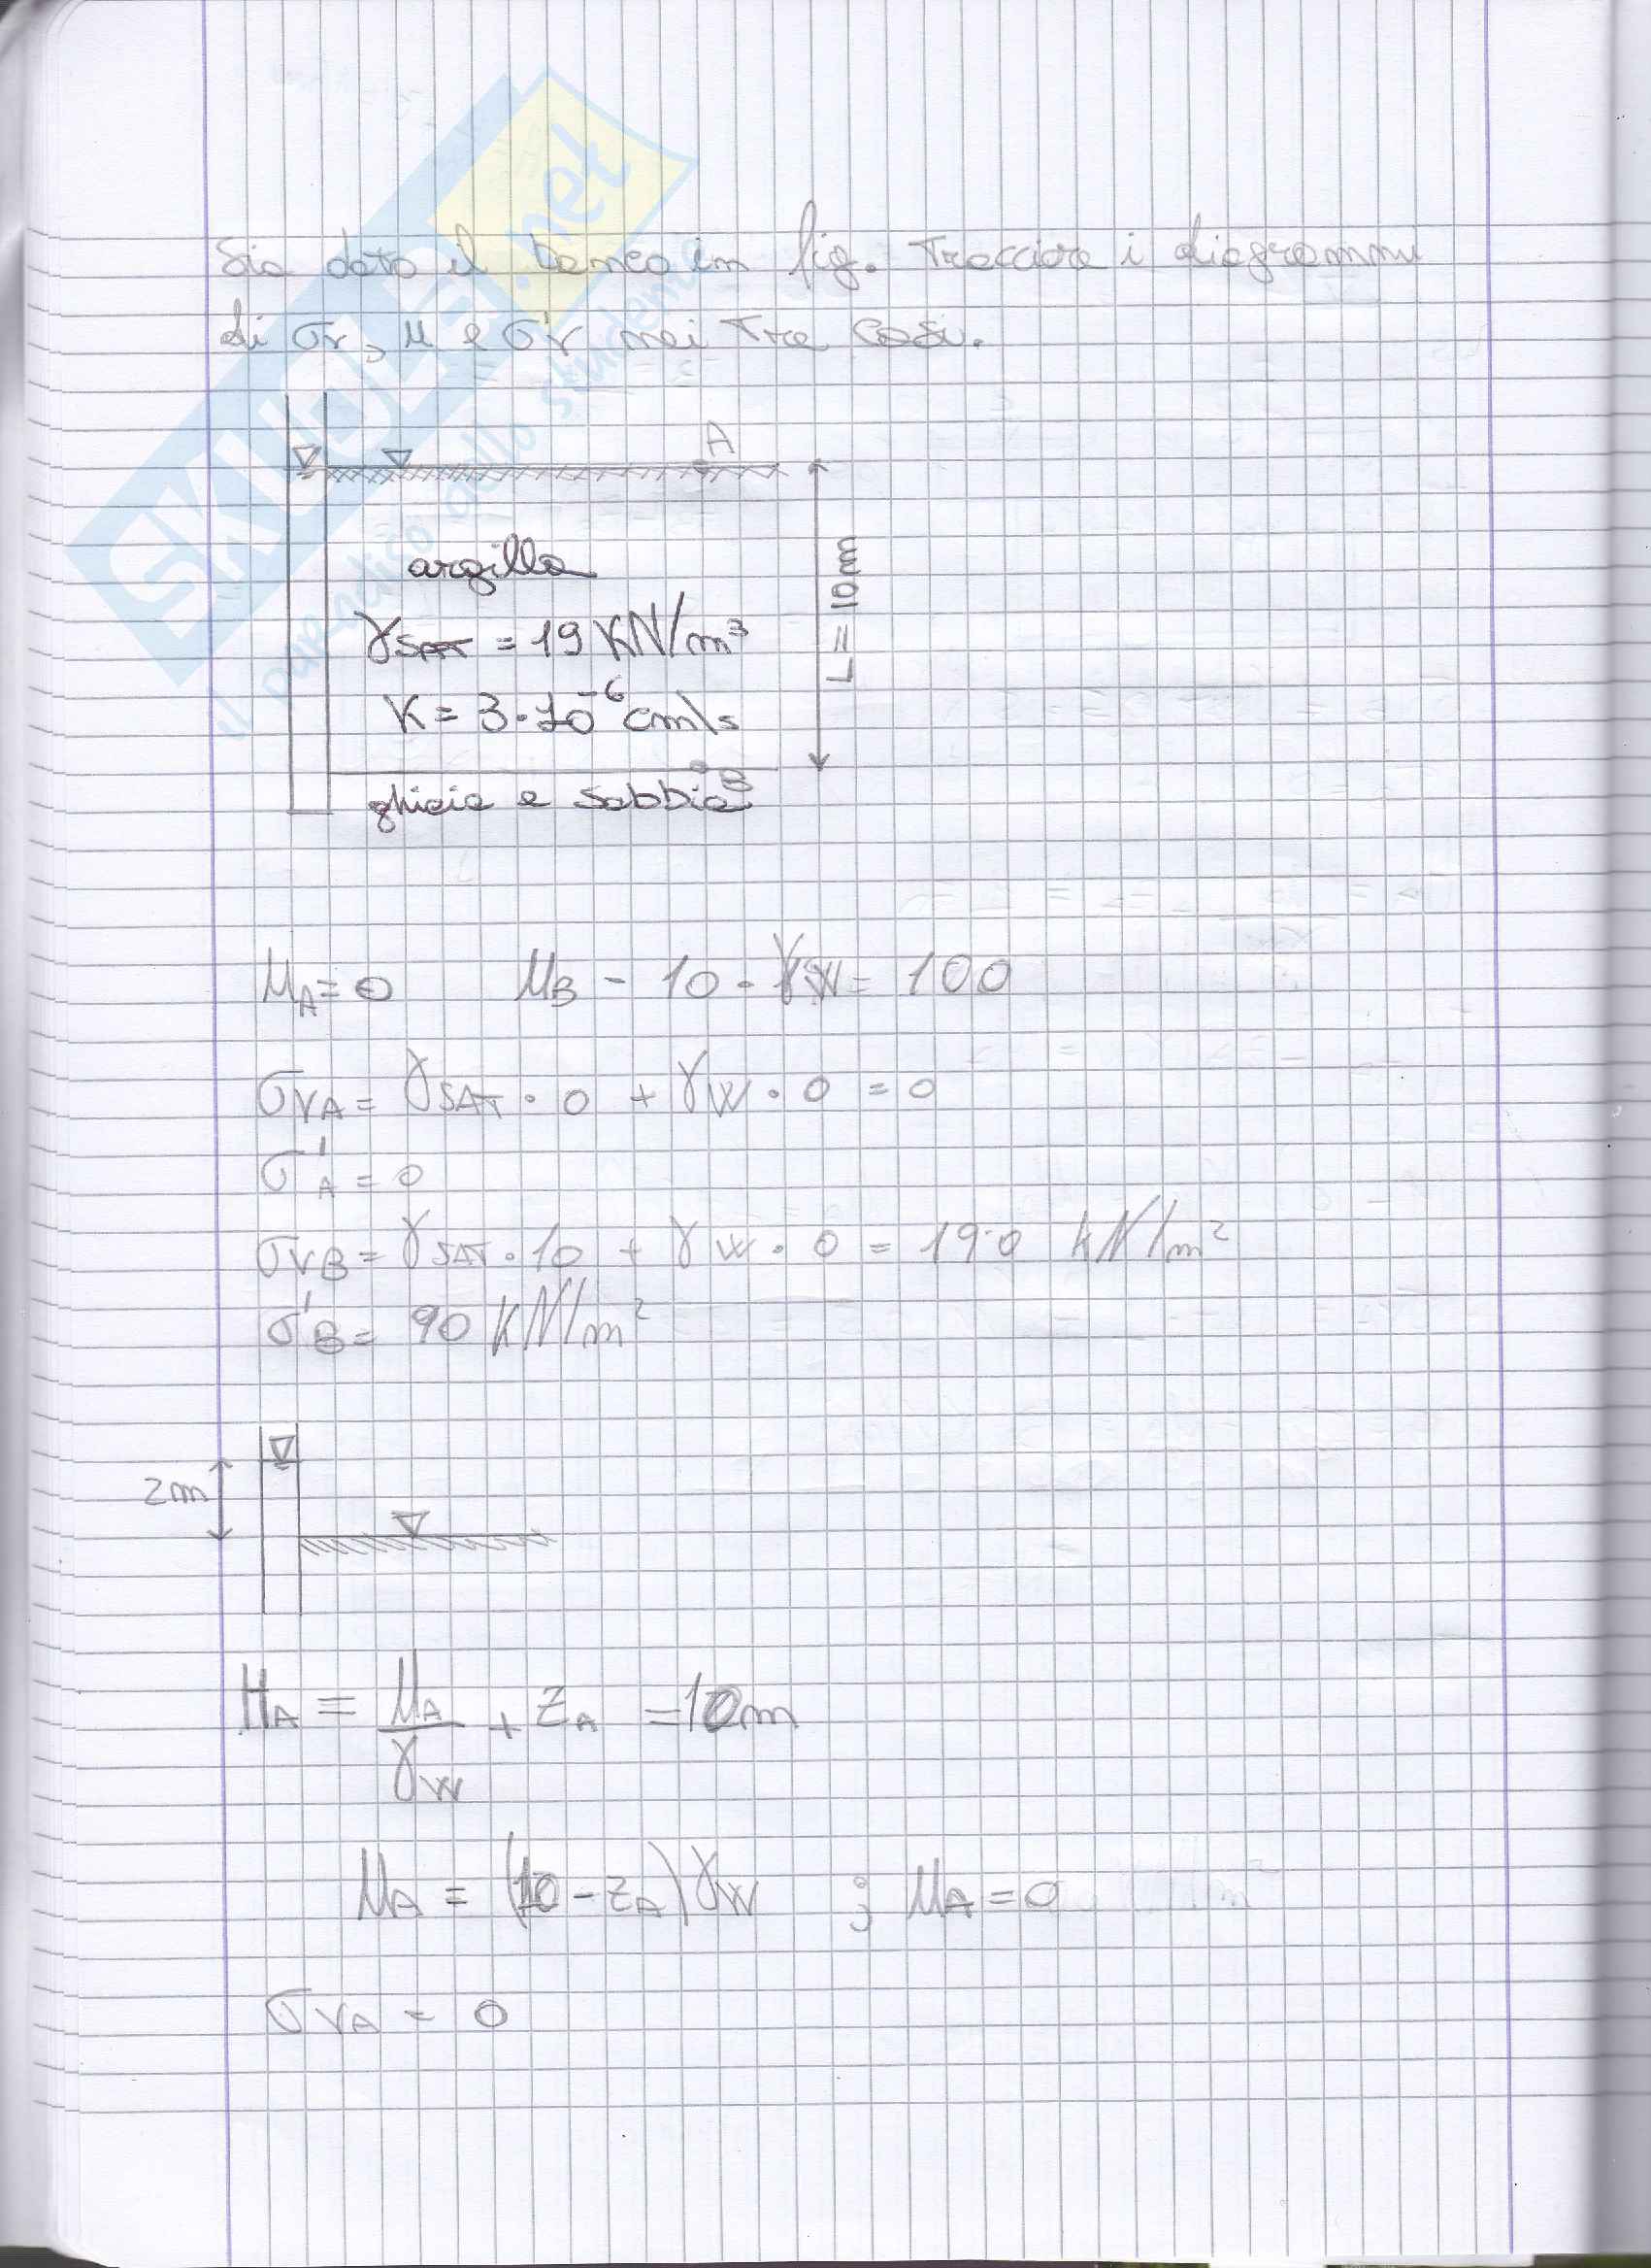 Sia dato il banco in fig. Tracciare i diagrammi
di σv, u e σ'v nei tre casi.
A
argilla
γSAT = 19 KN/m³
K = 3·10⁻⁶ cm/s
L = 10m
B
ghiaia e sabbia
SKUOLA.net
il paradiso dello studente
uA = 0 uB = 10 · γw = 100
σVA = γSAT · 0 + γW · 0 = 0
σ'A = 0
σVB = γSAT · 10 + γW · 0 = 190 kN/m²
σ'B = 90 KN/m²
2m
HA = uA/γW + ZA = 10m
uA = (10 - ZA) γW ; uA = 0
σVA = 0